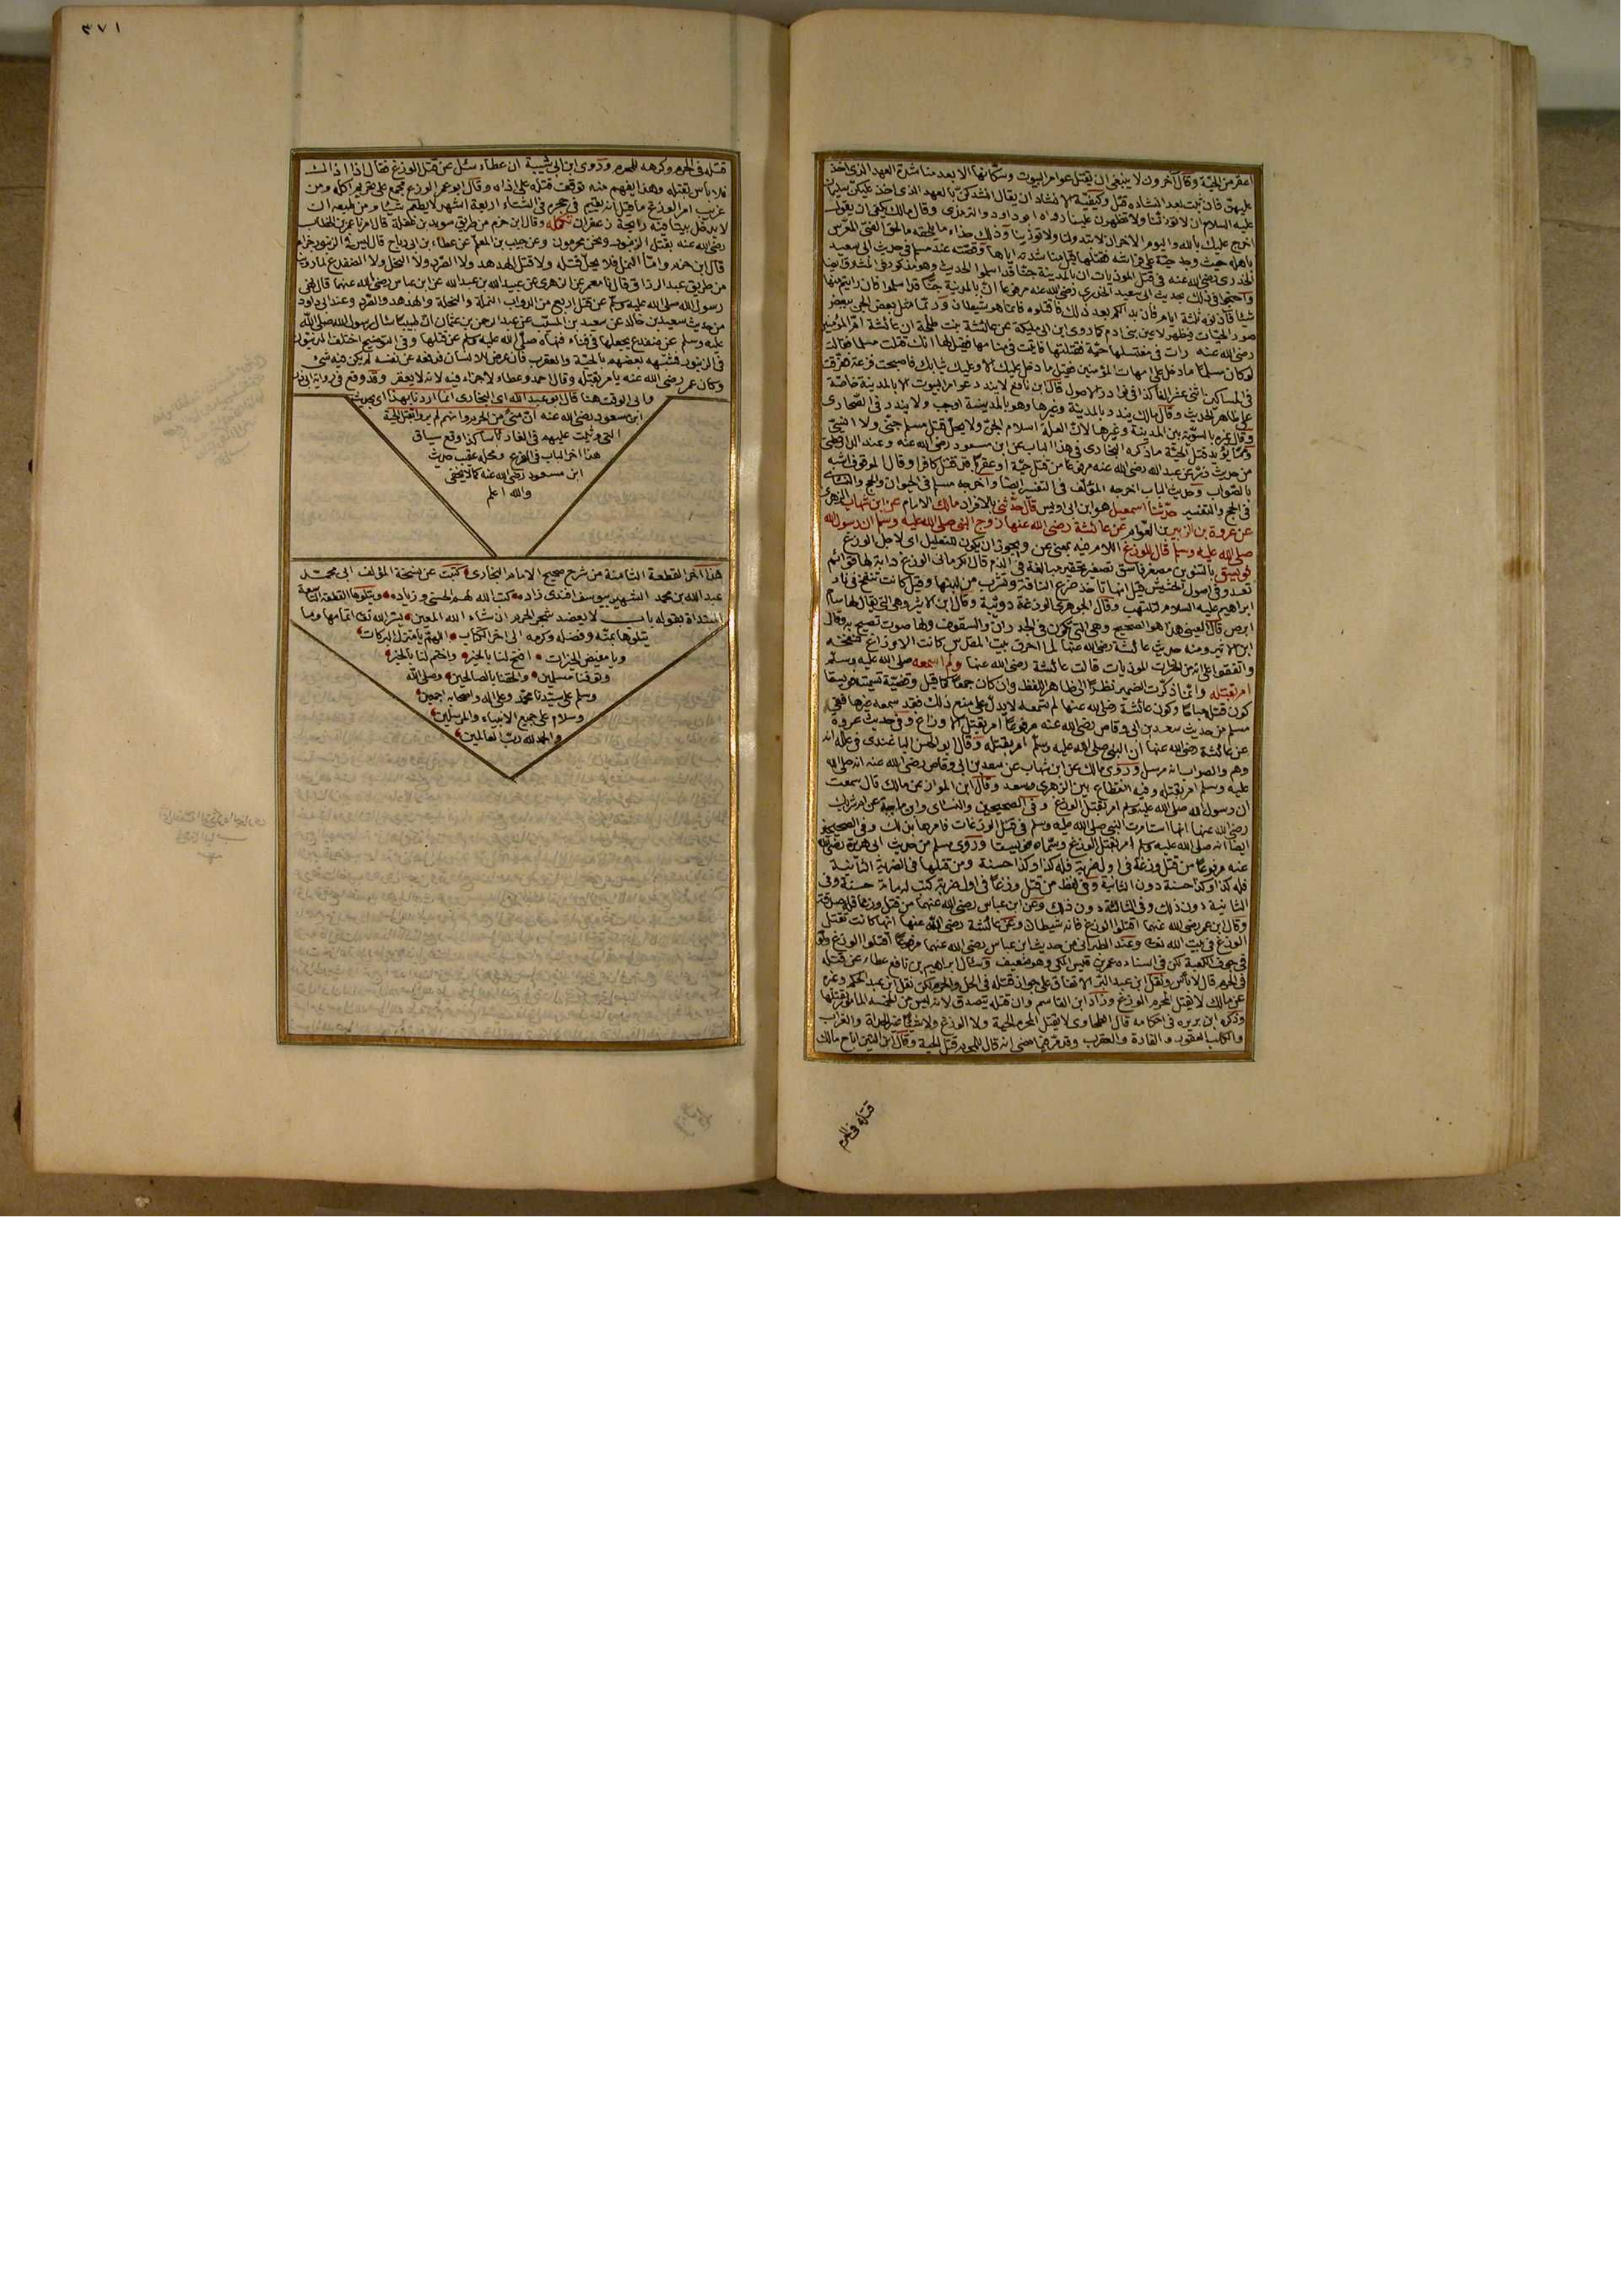 اعقر من الحيّة وقال آخرون لا ينبغي ان يقتل عوامر البيوت وسكّانها الا بعد مناشدة العهد الذي اخذ
عليهنّ فان ثبت بعد النشاده قتل وكيفيّة الانشاد ان يقال انشدكنّ بالعهد الذي اخذ عليكنّ سليمان
عليه السلام ان لا تؤذننا ولا تظهرون علينا رواه ابو داود والترمذي وقال مالك يكفي ان يقول
احرج عليك بالله واليوم الاخر ان لا تتبدوا لنا ولا تؤذينا وذلك حذاء ما يلحقه ما لحق الفتى المعرس
باهله حيث وجد حيّة على فراشه فقتلها قبل مناشدته اياها وقصّته عند مسلم في حديث ابي سعيد
الخدري رضي الله عنه في قتل الموذيات ان بالمدينة جنّا قد اسلموا الحديث وهو مذكور في
واحتجوا في ذلك بحديث ابي سعيد الخدري رضي الله عنه مرفوعا انّ بالمدينة جنّا قد اسلموا فان رايتم منها
شيئا فآذنوه ثلثة ايام فان بدا لكم بعد ذلك فاقتلوه فانما هو شيطان وربّما تمثل بعض الجن ببعض
صور الحيّات فيظهر لاعين بني ادم كما روى ابن ابي مليكة عن عائشة بنت طلحة ان عائشة امّ المؤمنين
رضي الله عنه رات في مغتسلها حيّة فقتلتها فاتيت في منامها فقيل لها انك قتلت مسلما فقالت
لو كان مسلمًا ما دخل على امهات المؤمنين فقيل ما دخل عليك الا وعليك ثيابك فاصبحت فزعة ففرّقت
في المساكين اثنى عشر الفا كذا في نوادر الاصول قال ابن نافع لا ينذر عوامر البيوت الا بالمدينة خاصّة
على ظاهر الحديث وقال مالك ينذر بالمدينة وغيرها وهو بالمدينة اوجب ولا ينذر في الصّحارى
وقال غيره بالسويّة بين المدينة وغيرها لانّ العلّة اسلام الجنّ ولا يحلّ قتل مسلم جنّي ولا انسيّ
وممّا يؤيد قتل الحيّة ما ذكره البخاري في هذا الباب عن ابن مسعود رضي الله عنه وعند الدارقطني
من حديث ذرّ عن عبد الله رضي الله عنه مرفوعًا من قتل حيّة او عقربًا فقد قتل كافرا وقال الموقوف اشبه
بالصّواب وحديث الباب اخرجه المؤلّف في التفسير ايضًا واخرجه مسلم في الحيوان والحج والنسائي
في الحج والتفسير حدّثنا اسمعيل هو ابن ابي اويس قال حدّثني بالافراد مالك الامام عن ابن شهاب الزهري
عن عروة بن الزبير بن العوّام عن عائشة رضي الله عنها زوج النبي صلى الله عليه وسلم ان رسول الله
صلى الله عليه وسلم قال للوزغ اللام فيه بمعنى عن ويجوز ان يكون للتعليل اي لاجل الوزغ
فويسق بالتنوين مصغر فاسق تصغير تحقير مبالغة في الذم قال الكرماني الوزغ دابة لها قوائم
تعدو في اصول الحشيش قيل انها تاخذ ضرع الناقة وتشرب من لبنها وقيل كانت تنفخ في نار
ابراهيم عليه السلام لتلتهب وقال الجوهري الوزغة دويبّة وقال ابن الاثير وهي التي يقال لها سام
ابرص قال العيني هذا هو الصحيح وهي التي تكون في الجدران والسقوف ولها صوت تصيح به وقال
ابن الاثير ومنه حديث عائشة رضي الله عنها لما احرق بيت المقدّس كانت الاوزاغ تنفخه
واتفقوا على انه من الحشرات الموذيات قالت عائشة رضي الله عنها ولم اسمعه صلى الله عليه وسلم
امر بقتله وانما ذكّرت الضمير نظرًا الى ظاهر اللفظ وان كان جمعًا كما قيل وقضيّة تسميته فويسقا
كون قتله مباحًا وكون عائشة رضي الله عنها لم تسمعه لا يدلّ على منع ذلك فقد سمعه غيرها ففي
مسلم من حديث سعد بن ابي وقاص رضي الله عنه مرفوعًا امر بقتل الاوزاغ وفي حديث عروة
عن عائشة رضي الله عنها ان النبي صلى الله عليه وسلّم امر بقتله وقال ابو الحسن الباغندي في علله انه
وهم والصواب انه مرسل وروى مالك عن ابن شهاب عن سعد بن ابي وقاص رضي الله عنه انه صلى الله
عليه وسلم امر بقتله وفيه انقطاع بين الزهري وسعد وقال ابن المواز عن مالك قال سمعت
ان رسول الله صلى الله عليه وسلم امر بقتل الوزغ وفي الصحيحين والنسائي وابن ماجة عن ام شريك
رضي الله عنها انها استامرت النبي صلى الله عليه وسلم في قتل الوزغات فامرها بذلك وفي الصحيحين
ايضا انه صلى الله عليه وسلم امر بقتل الوزغ وسمّاه فويسقا وروى مسلم من حديث ابي هريرة رضي الله
عنه مرفوعًا من قتل وزغة في اول ضربة فله كذا وكذا حسنة ومن قتلها في الضربة الثانية
فله كذا وكذا حسنة دون الثانية وفي لفظ من قتل وزغًا في اول ضربة كتب له مائة حسنة وفي
الثانية دون ذلك وفي الثالثة دون ذلك وعن ابن عباس رضي الله عنهما من قتل وزغا فله صدقة
وقال ابن عمر رضي الله عنهما اقتلوا الوزغ فانه شيطان وعن عائشة رضي الله عنها انها كانت تقتل
الوزغ في بيت الله تعالى وعند الطبراني من حديث ابن عباس رضي الله عنهما مرفوعًا اقتلوا الوزغ ولو
في جوف الكعبة لكن في اسناده عمر بن قيس المكي وهو ضعيف وسئال ابراهيم بن نافع عطاء عن قتله
في الحرم قال لا بأس ونقل ابن عبد البرّ الاتفاق على جواز قتله في الحل والحرم لكن نقل ابن عبد الحكم وغيره
عن مالك لا يقتل المحرم الوزغ وزاد ابن القاسم وان قتله يتصدق لانه ليس من الخمسة المامور بقتلها
وذكره ابن بريزه في احكامه قال الطحاوي لا يقتل المحرم الحية ولا الوزغ ولا شيئًا غير الحداة والغراب
والكلب العقور والفارة والعقرب وقد مرّ فيما مضى انه قال للمحرم قتل الحية وقال ابن التين اباح مالك
قتله في الحرم
٣٧١
قتله في الحرم وكرهه للمحرم وروى ابن ابي شيبة ان عطاء سئل عن قتل الوزغ فقال اذا اذاك
فلا باس بقتله وهذا يفهم منه توقف قتله على اذاه وقال ابو عمر الوزغ مجمع على تحريم اكله ومن
غريب امر الوزغ ما قيل انه يقيم في جحره في الشتاء اربعة اشهر لا يطعم شيئا ومن طبعه ان
لا يدخل بيتا فيه رايحة زعفران تكمله وقال ابن حزم من طريق سويد بن غفلة قال امرنا عمر بن الخطاب
رضي الله عنه بقتل الزنبور ونحن محرمون وعن حبيب بن المعلّم عن عطاء بن ابي رباح قال ليس في الزنبور جزاء
قال ابن حزم وامّا النمل فلا يحلّ قتله ولا قتل الهدهد ولا الصّرد ولا النحل ولا الضفدع لما روينا
من طريق عبد الرزاق قال نا معمر عن الزهري عن عبيد الله بن عبد الله عن ابن عباس رضي الله عنهما قال نهى
رسول الله صلى الله عليه وسلم عن قتل اربع من الدواب النملة والنحلة والهدهد والصّرد وعند ابي داود
من حديث سعيد بن خالد عن سعيد بن المسيّب عن عبد الرحمن بن عثمان انّ طبيبا سئال رسول الله صلى الله
عليه وسلم عن ضفدع يجعلها في دواء فنهاه صلى الله عليه وسلم عن قتلها وفي التوضيح اختلف المدنيّون
في الزنبور فشبّهه بعضهم بالحيّة والعقرب فان عرض للانسان فدفعه عن نفسه لم يكن فيه شئ
وكان عمر رضي الله عنه يامر بقتله وقال احمد وعطاء لا جزاء فيه لانه لا يعقر وقد وقع في رواية ابي ذر
وابي الوقت هنا قال ابو عبد الله اي البخاري انما اردنا بهذا اي بحديث
ابن مسعود رضي الله عنه انّ منى من الحرم وانهم لم يروا بقتل الحية
التي وثبت عليهم في الغار بأسا كذا وقع سياق
هذا اخر الباب في الفرع ومحله عقب حديث
ابن مسعود رضي الله عنه كما لا يخفى
والله اعلم
هذا اخر القطعة الثامنة من شرح صحيح الامام البخاري كتبت عن نسخة المؤلف ابي محمّد
عبد الله بن محمد الشهير بيوسف افندي زاده كتب الله لهم الحسنى وزياده ويتلوها القطعة التاسعة
المبتداة بقوله باب لا يعضد شجر الحرم ان شاء الله المعين يسّر الله تعالى اتمامها وما
يتلوها بمنّه وفضله وكرمه الى اخر الكتاب اللهم يا منزل البركات
ويا مفيض الخيرات افتح لنا بالخير واختم لنا بالخير
وتوفنا مسلمين والحقنا بالصالحين وصلى الله
وسلم على سيّدنا محمّد وعلى اله واصحابه اجمعين
وسلام على جميع الانبياء والمرسلين
والحمد لله ربّ العالمين